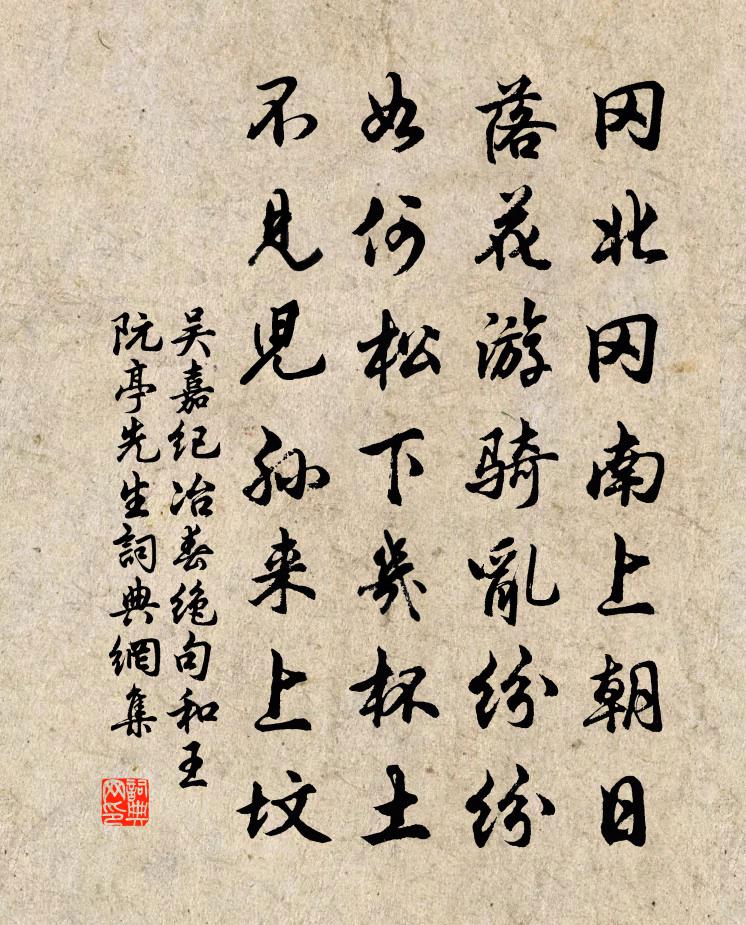 冈北冈南上朝日
落花游骑亂纷纷
如何松下幾杯土
不見児孙来上坟
吴嘉纪冶春绝句和王
阮亭先生詞典網集
詞典
网印